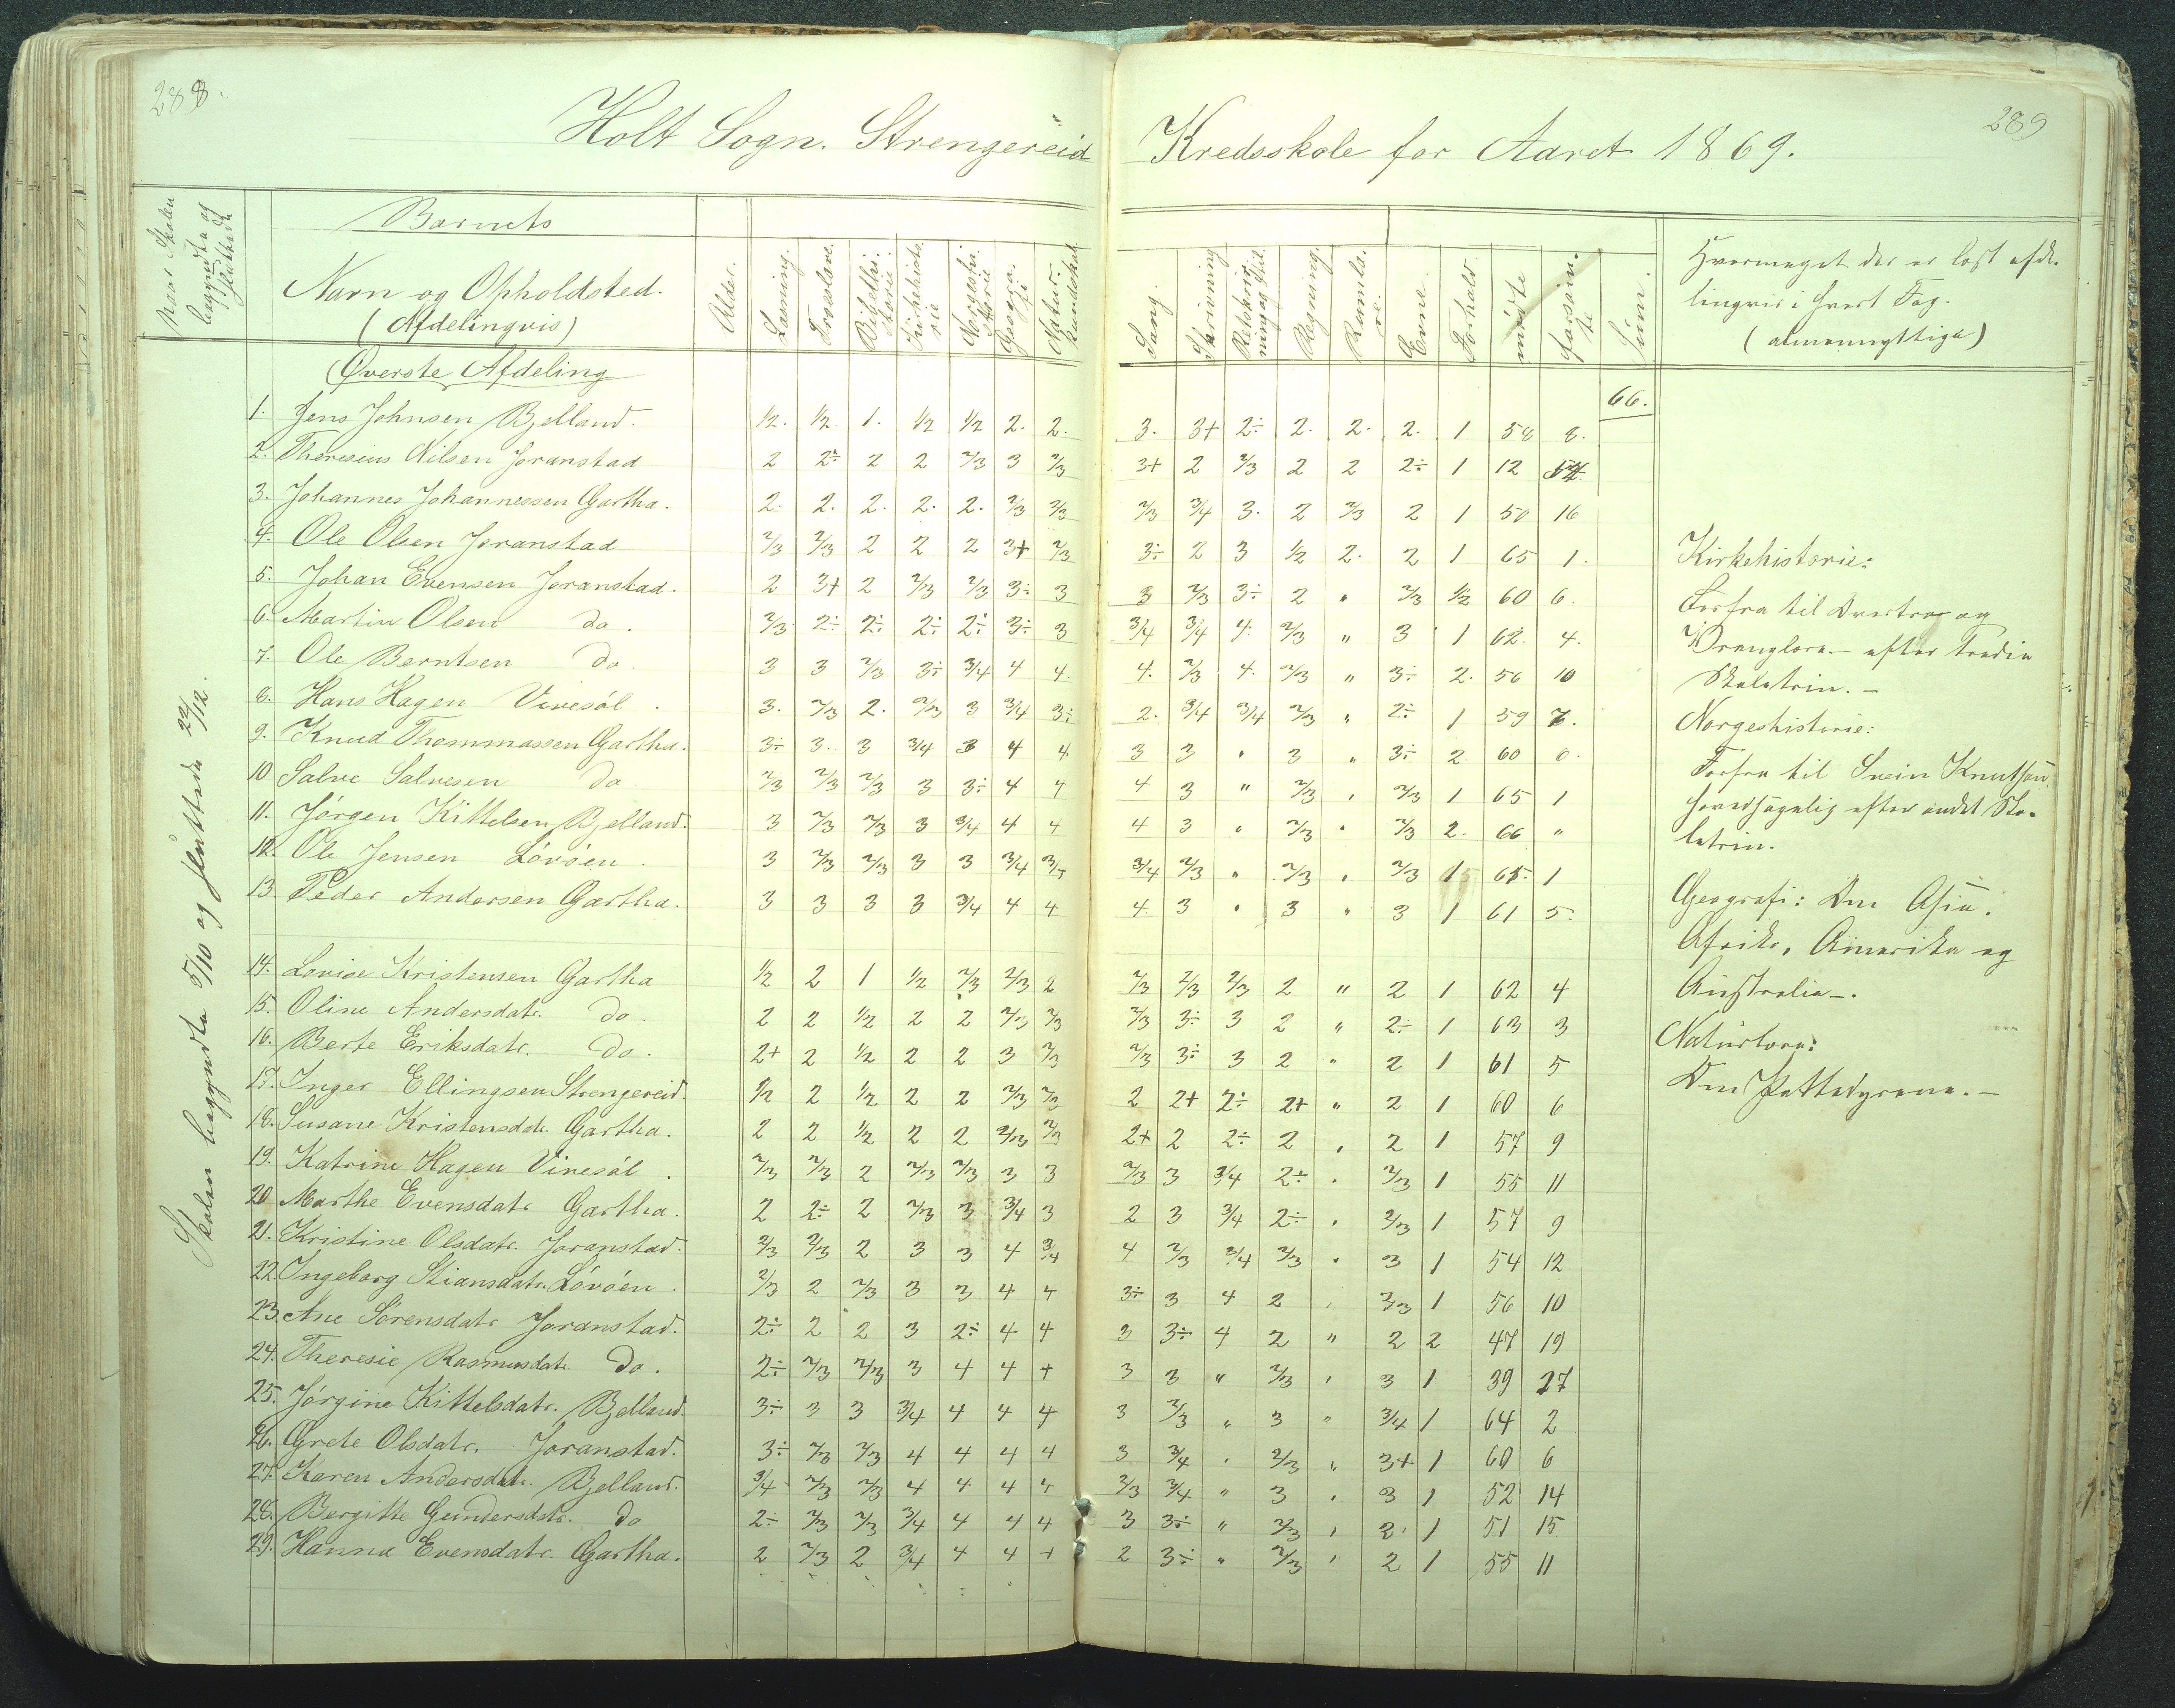 288.
Holt Sogn. Strengereid Kredsskole for Aaret 1869.
289
Naar Skolen begyndte og sluttede
Barnets
Navn og Opholdsted.
(Afdelingvis)
Alder.
Læsning.
Troeslære.
Bibelhistorie.
Kirkehistorie
Norgeshistorie
Geografi
Naturkundskab
Sang.
Skrivning
Retskrivning og Stil.
Regning.
Evne.
Forhold
mödte
forsömte
Sum.
Hvormeget der er læst afdelingvis i hvert Fag.
(almennyttige)
Øverste Afdeling
66.
Skolen begyndte 5/10 og sluttede 22/12.
1. Jens Johnsen Bjelland. 1/2. 1/2 1. 1/2 1/2 2. 2. 3. 3+ 2÷ 2. 2. 2. 1 58 8.
2. Theresius Nilsen Joranstad 2 2÷ 2 2 2/3 3 2/3 3+ 2 2/3 2 2 2÷ 1 12 54.
3. Johannes Johannessen Gartha. 2. 2. 2. 2. 2. 2/3 2/3 2/3 3/4 3. 2 2/3 2 1 50 16
4. Ole Olsen Joranstad 2/3 2/3 2 2 2 3+ 2/3 3÷ 2 3 1/2 2. 2 1 65 1.
5. Johan Evensen Joranstad. 2 3+ 2 2/3 2/3 3÷ 3 3 2/3 3÷ 2 " 2/3 1/2 60 6.
6. Martin Olsen do. 2/3 2÷ 2÷ 2÷ 2÷ 3÷ 3 3/4 3/4 4. 2/3 " 3 1 62. 4.
7. Ole Berntsen do. 3 3 2/3 3÷ 3/4 4 4. 4. 2/3 4. 2/3 " 3÷ 2. 56 10
8. Hans Hagen Vivesöl. 3. 2/3 2. 2/3 3 3/4 3÷ 2. 3/4 3/4 2/3 " 2÷ 1 59 7.
9. Knud Thommassen Gartha. 3÷ 3. 3 3/4 3 4 4 3 3 " 3 " 3÷ 2 60 6.
10 Salve Salvesen do 2/3 2/3 2/3 3 3÷ 4 4 4 3 " 2/3 " 2/3 1 65 1
11. Jörgen Kittelsen Bjelland. 3 2/3 2/3 3 3/4 4 4 4 3 " 2/3 " 2/3 2. 66 "
12. Ole Jensen Lövöen. 3 2/3 2/3 3 3 3/4 3/4 3/4 2/3 " 2/3 " 2/3 1 65. 1
13. Peder Andersen Gartha. 3 3 3 3 3/4 4 4 4 3 " 3 " 3 1 61 5.
14. Lovise Kristensen Gartha 1/2 2 1 1/2 2/3 2/3 2 2/3 2/3 2/3 2 " 2 1 62 4
15. Oline Andersdatr. do. 2 2 1/2 2 2 2/3 2/3 2/3 3÷ 3 2 " 2÷ 1 63 3
16. Berte Eriksdatr. do. 2+ 2 1/2 2 2 3 2/3 2/3 3÷ 3 2 " 2 1 61 5
17. Inger Ellingsen Strengereid. 1/2 2 1/2 2 2 2/3 2/3 2 2+ 2÷ 2+ " 2 1 60 6
18. Susane Kristensdatr. Gartha. 2 2 1/2 2 2 2/3 2/3 2+ 2 2÷ 2 " 2 1 57 9
19. Katrine Hagen Vivesöl. 2/3 2/3 2 2/3 2/3 3 3 2/3 3 3/4 2÷ " 2/3 1 55 11
20 Marthe Evensdatr Gartha. 2 2÷ 2 2/3 3 3/4 3 2 3 3/4 2÷ " 2/3 1 57 9
21. Kristine Olsdatr. Joranstad. 2/3 2/3 2 3 3 4 3/4 4 2/3 3/4 2/3 " 3 1 54 12
22. Ingeborg Stiansdatr. Lövöen. 2/3 2 2/3 3 3 4 4 3÷ 3 4 2 " 2/3 1 56 10
23. Ane Sörensdatr Joranstad. 2÷ 2 2 3 2÷ 4 4 3 3÷ 4 2 " 2 2 47 19
24. Theresie Rasmusdatr. do. 2÷ 2/3 2/3 3 4 4 4 3 3 " 2/3 " 3 1 39 27
25. Jörgine Kittelsdatr. Bjelland. 3÷ 3 3 3/4 4 4 4 3 2/3 " 3 " 3/4 1 64 2
26. Grete Olsdatr. Joranstad. 3÷ 2/3 2/3 4 4 4 4 3 3/4 " 2/3 " 3+ 1 60 6
27. Karen Andersdatr. Bjelland. 3/4 2/3 2/3 4 4 4 4 2/3 3/4 " 3 " 3 1 52 14
28. Bergitte Gundersdatr. do 2÷ 2/3 2/3 3/4 4 4 4 3 3÷ " 2/3 " 2 1 51 15
29. Hanna Evensdatr. Gartha. 2 2/3 2 3/4 4 4 4 2 3÷ " 2/3 " 2 1 55 11
Kirkehistorie:
Forfra til og
Vranglære. — efter tredie
Skoletrin. —
Norgeshistorie:
Forfra til Svein Knutsön
hovedsagelig efter andet Skoletrin.
Geografi: Om Asien,
Afrika, Amerika og
Australia —.
Naturlære:
Om Pattedyrene. —